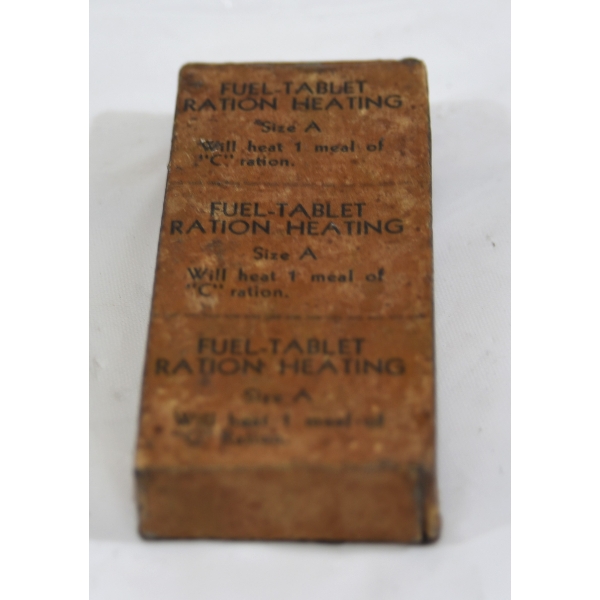 FUEL-TABLET
RATION HEATING.
Size A
Will heat 1 meal of
"C" ration.
FUEL-TABLET
RATION HEATING.
Size A
Will heat 1 meal of
"C" ration.
FUEL-TABLET
RATION HEATING
Size A
Will heat 1 meal of
"C" Ration.